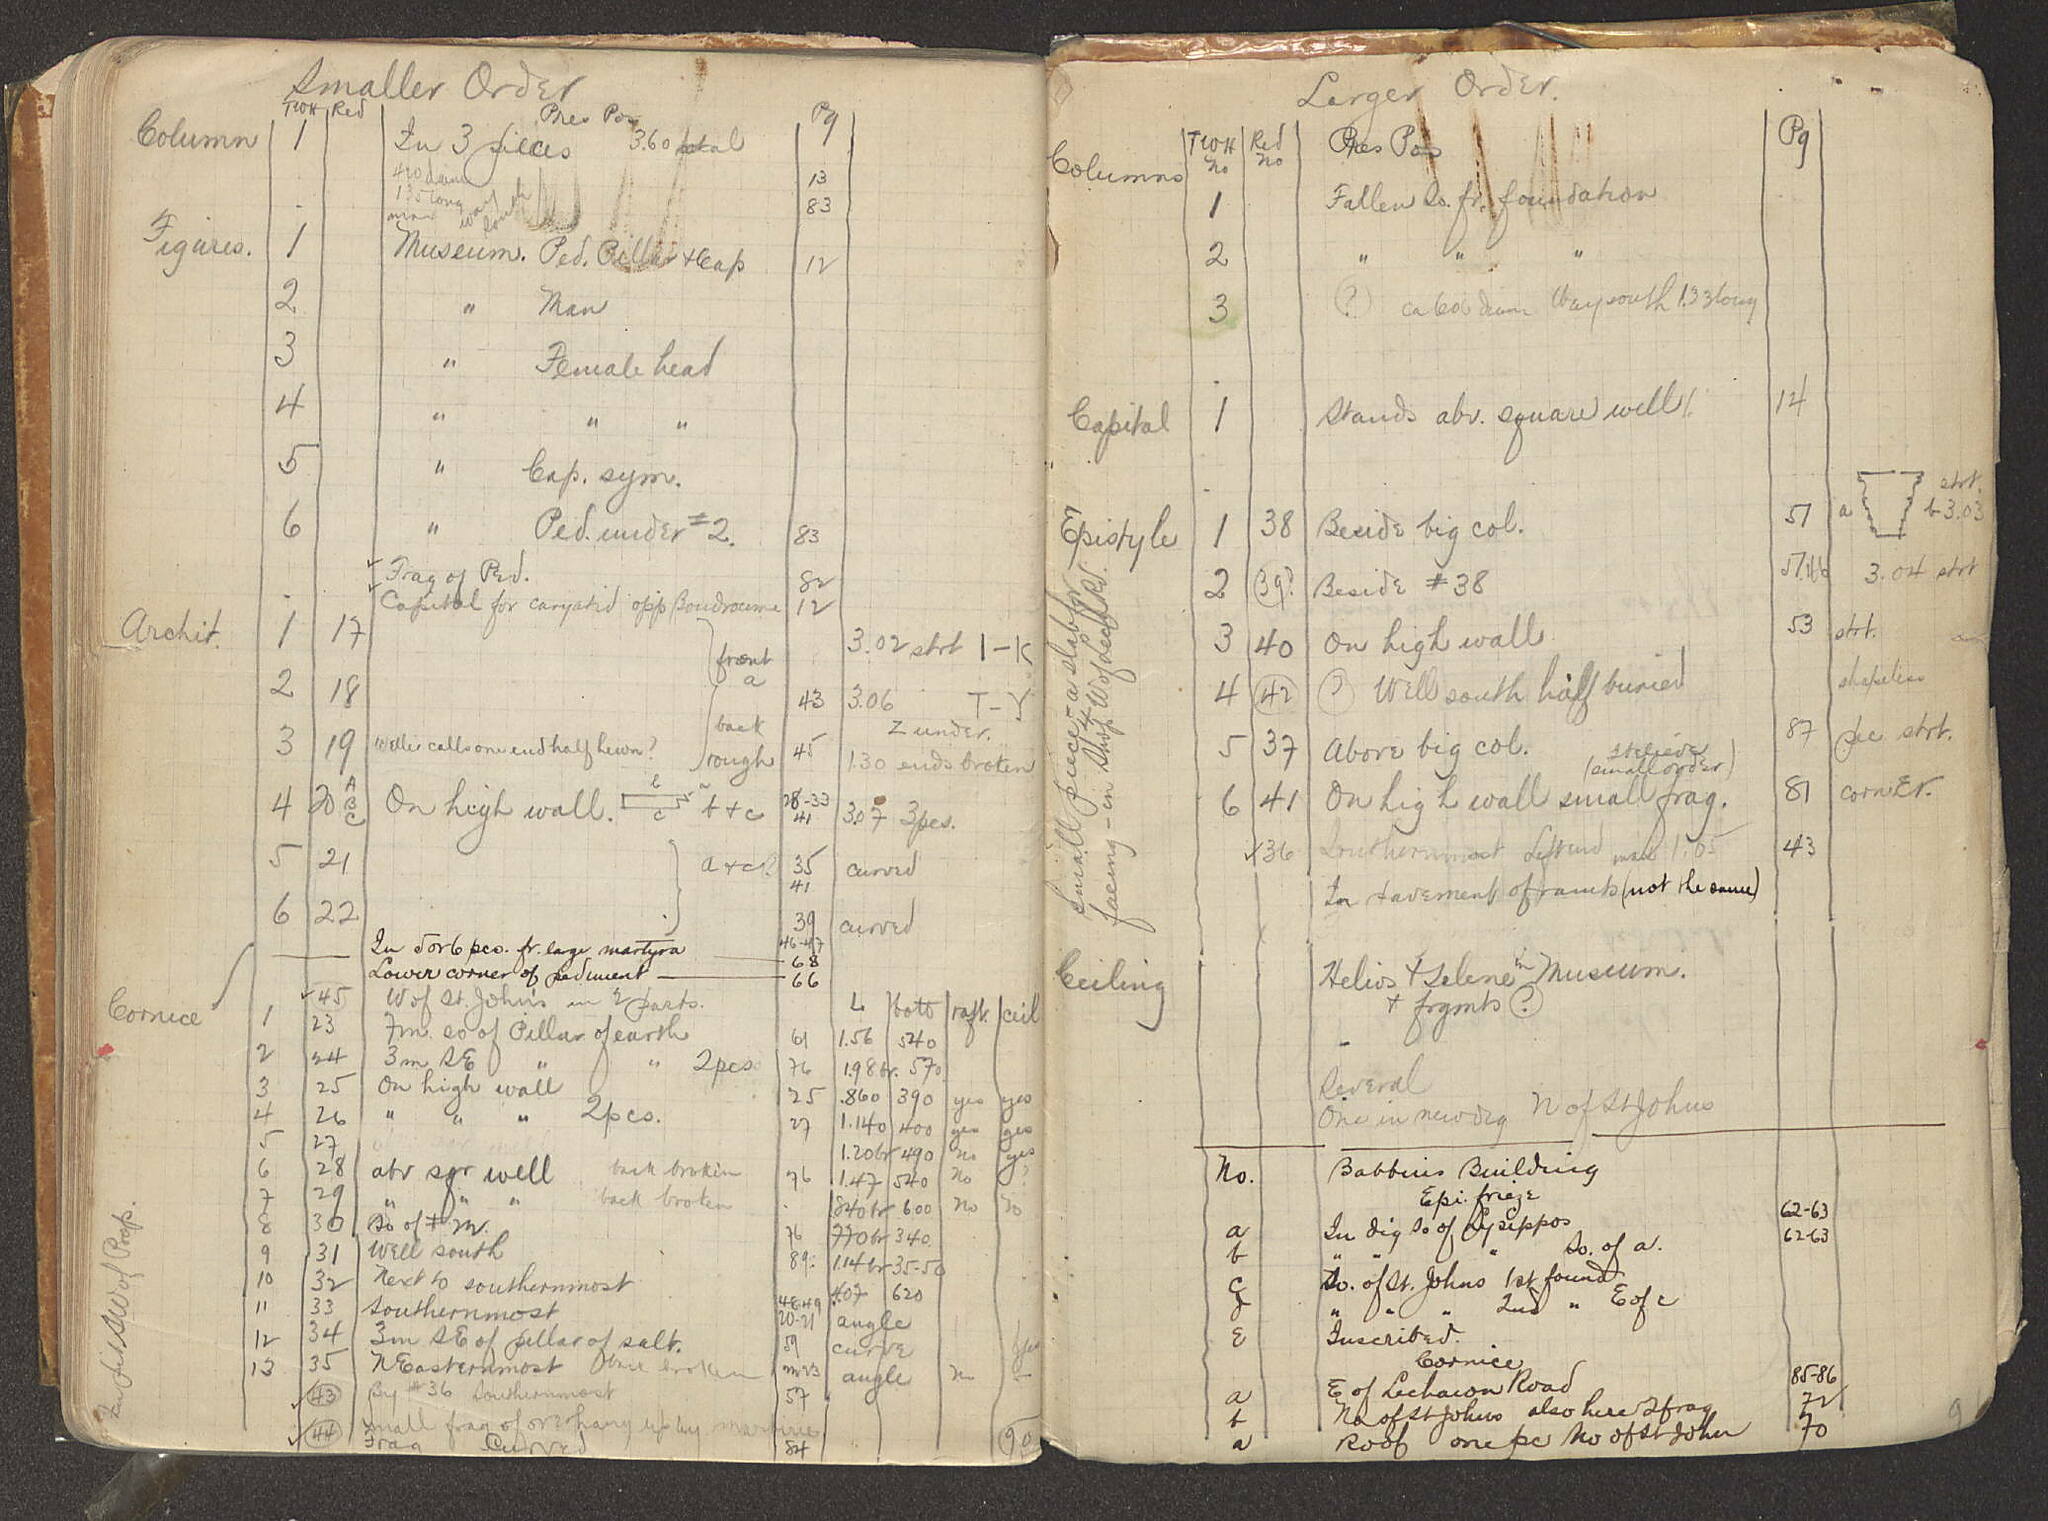 Smaller Order
TWH Red Pres Pos Pg
Column 1 In 3 pieces 3.60 total
13
83
Figures. 1 Museum. Ped. Pillar + Cap 12
2 " Man
3 " Female head
4 " " "
5 " Cap. sym.
6 " Ped. under #2. 83
✓ Frag of Ped. 82
✓ Capital for caryatid opp Boudroume 12
Archit. 1 17 front a 3.02 strt I-K
2 18 43 3.06 T-Y
back Z under.
3 19 calls one end half hewn? rough 45 1.30 ends broken
4 20 A B C On high wall. b c b + c 28-33 41 3.07 3 pcs.
5 21 a + c? 35 41 curved
6 22 39 curved
In 5 or 6 pcs. fr. large martyra 46-47 68
Lower corner of pediment 66
✓45 W of St. John's in 2 parts. L bott raft. ceil
Cornice 1 23 7m. so of Pillar of earth 61 1.56 540
2 24 3m SE " " 2pcs 76 1.98 br. 570
3 25 On high wall 25 .860 390 yes yes
4 26 " " " 2pcs. 27 1.140 400 yes yes
5 27 1.20br 490 no yes
6 28 abv sqr well back broken 76 1.47 540 No ?
7 29 " " " back broken 840br 600 No No
8 30 So of # 76 770br 340
9 31 Well south 89 1.14br 35-50
10 32 Next to southernmost 48-49 .407 620
11 33 Southernmost 20-21 angle
12 34 3m SE of pillar of salt. 59 curve
13 35 NEasternmost back broken angle no
✓43 By #36 Southernmost 57
✓44 small frag of overhang up by
Frag Curved 84
90
Larger Order.
TWH No Red No Pres Pos Pg
Columns 1 Fallen So. fr. foundation
2 " " "
3 ? Way south 1.33 long
Capital 1 Stands abv. square well 14
Epistyle 1 38 Beside big col. 51 a strt. b 3.03
2 39? Beside #38 3.04 strt
3 40 On high wall 53 strt.
4 42 ? Well south half buried shapeless
5 37 Above big col. 87 pce strt.
(small order)
6 41 On high wall small frag. 81 corner.
✓36 Southernmost 1.05 43
In pavement of ramp (not the same)
Small piece - a slab for
facing - in shop W of Lech Rd.
Ceiling Helios + Selene in Museum.
+ frgmts ?
Several
One in new dig N of St Johns
No. Babbitts Building
Epi. frieze
a In dig So of Lysippos 62-63
b " " " So. of a. 62-63
c So. of St. Johns 1st found
d " " " 2nd " E of c
E Inscribed.
Cornice
a E of Lechaion Road 85-86
b No of St Johns also here 2 frag 72
a Roof one pc No of St John 70
9